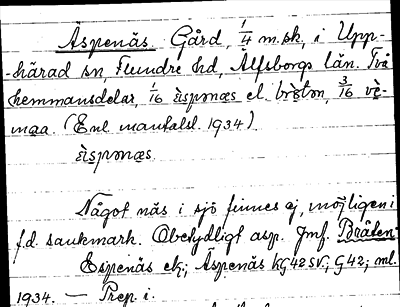 Äspenäs Gård, 1/4 m.sk, i Upp-
-härad sn, Flundre hd, Älfsborgs län. Två
hemmansdelar, 1/16 ä̀spənæs el. brɵ̀tən, 3/16 vè-
mɑa. (Enl. mantalsl. 1934).
ä̀spənæs
Något näs i sjö finnes ej, möjligen i
f.d. sankmark. Obetydligt asp. Jmf. Bråten
Espenäs ek; Äspenäs kG42SV; G42; ml.
1934. — Prep. i.